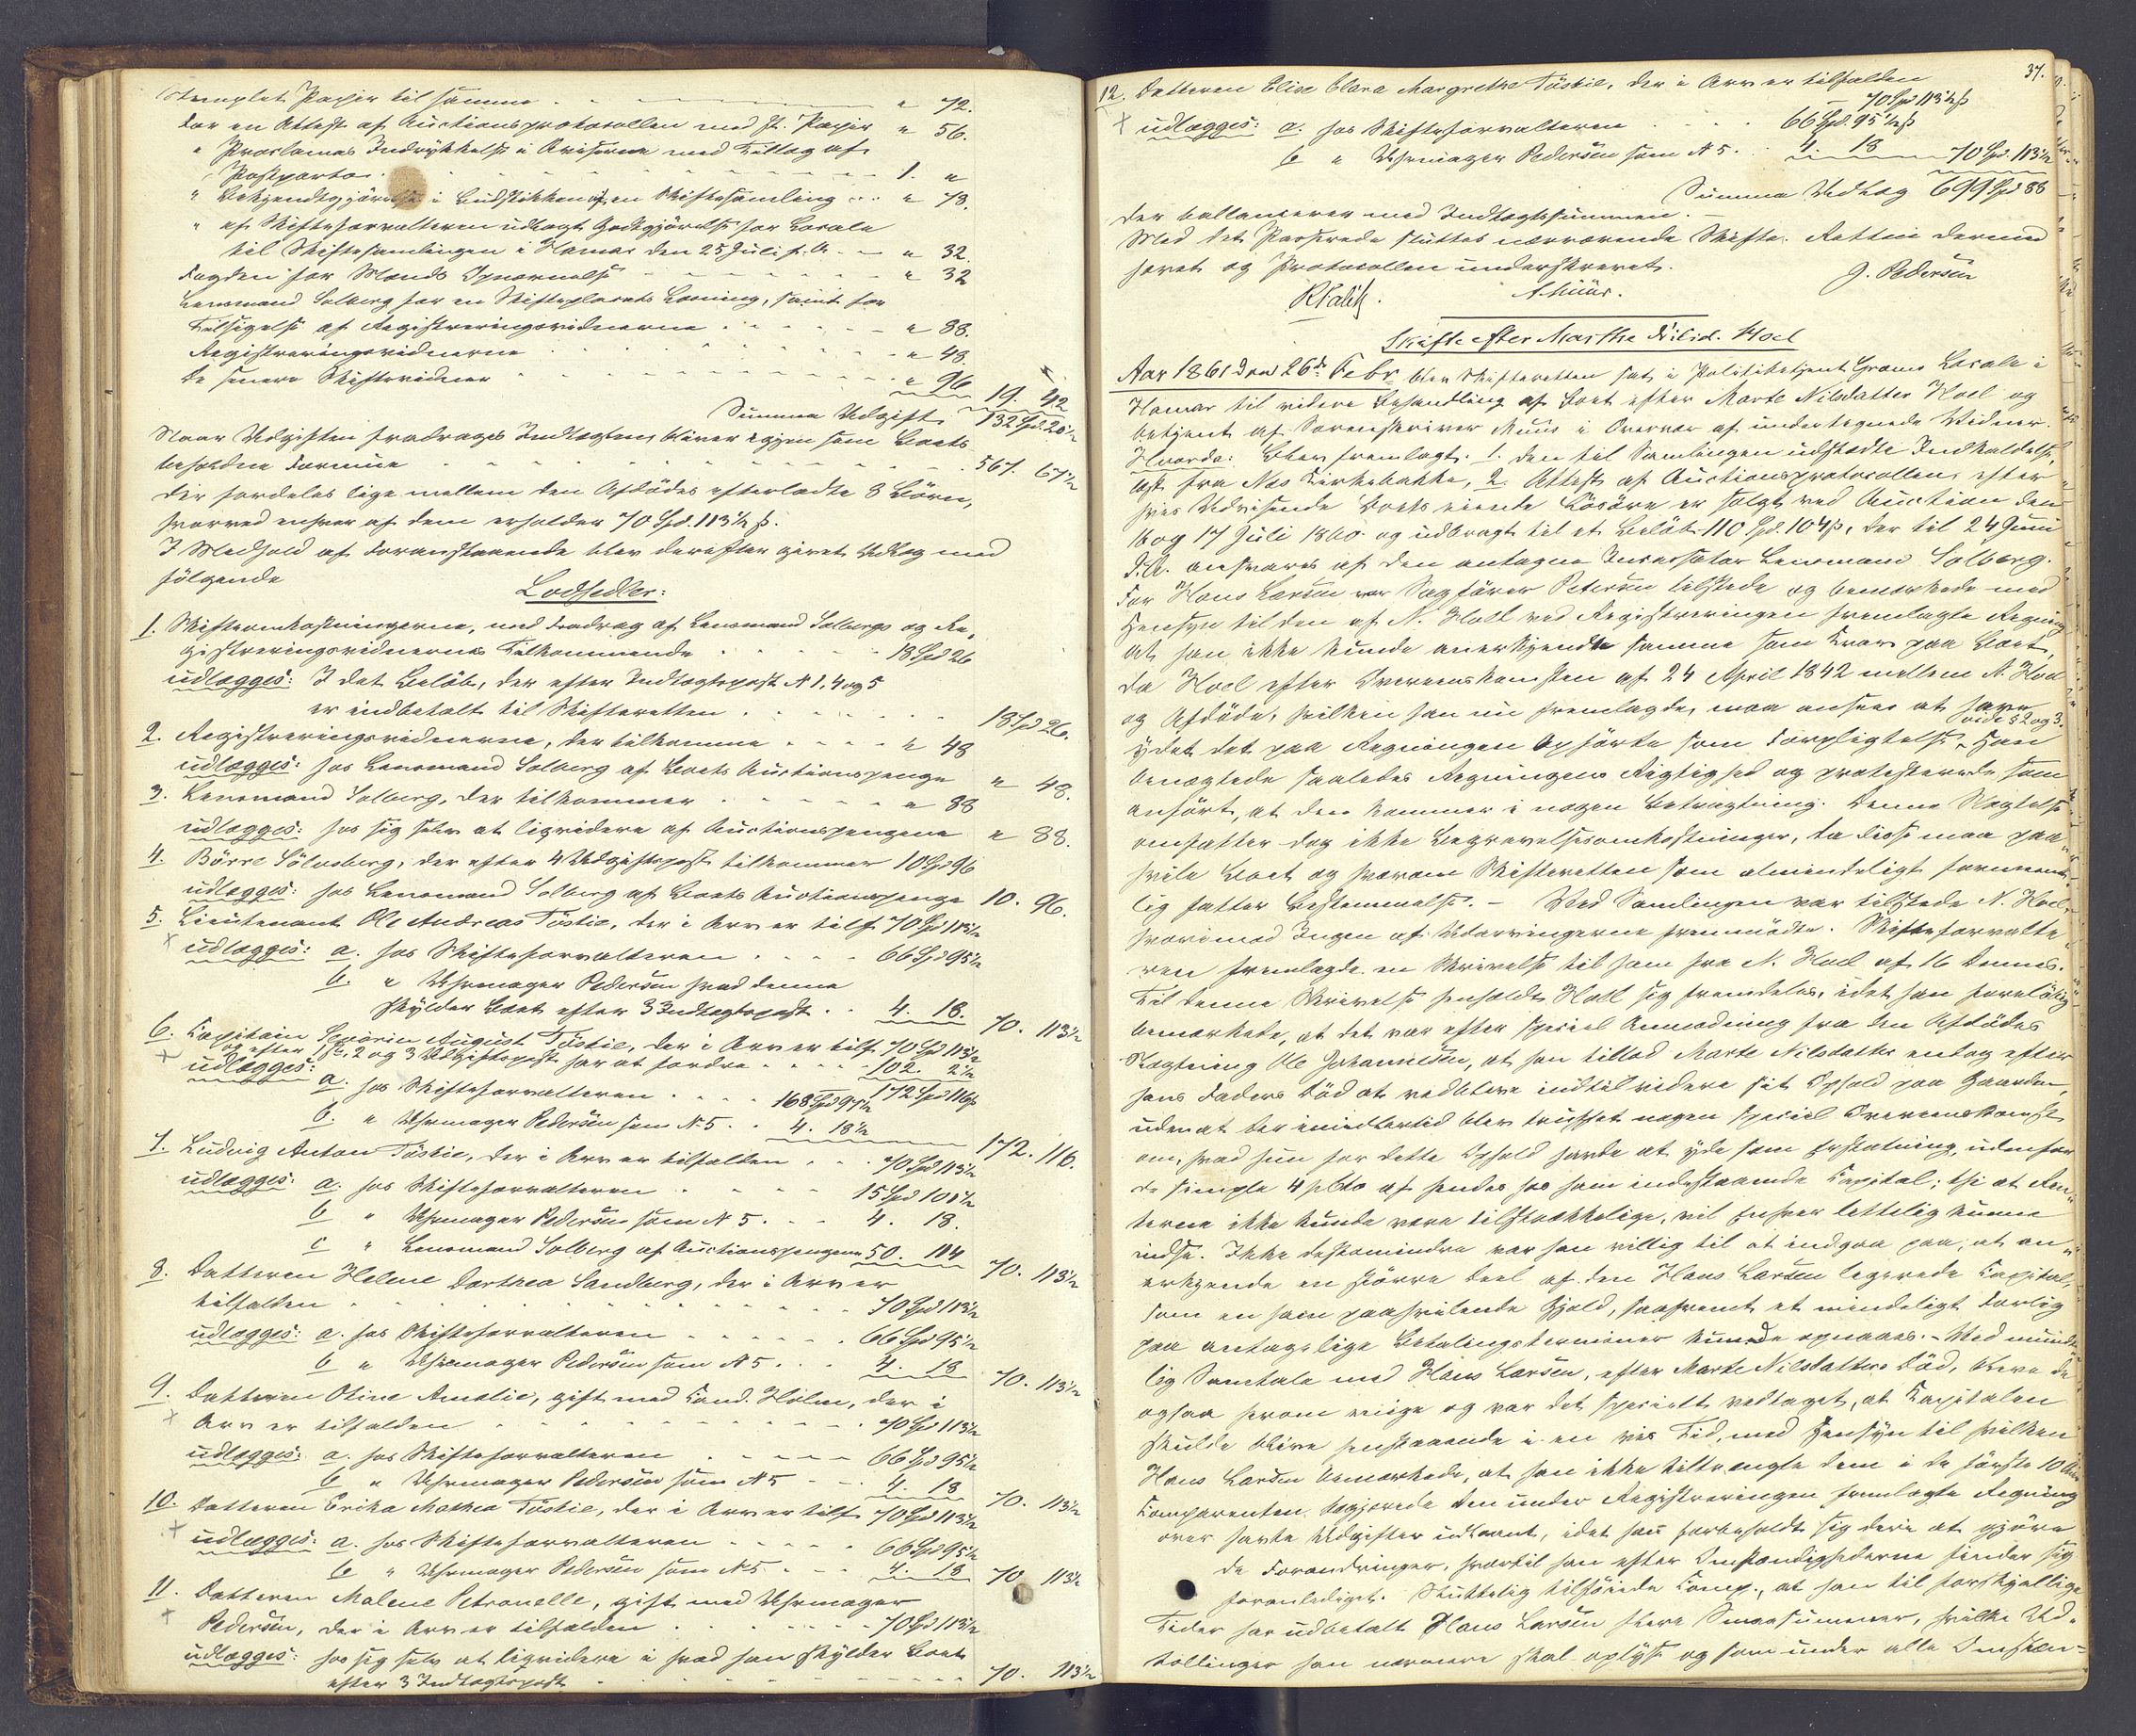 Stemplet Papir til samme . . . " 72.
For en Attest af Auctionsprotocollen med st. Papir " 56.
" Proclamas Indrykkelse i Aviserne med Tillæg af
Postporto . . . 1. "
" Bekjendtgjørelse i Budstikken om en Skiftesamling . . " 78.
" af Skifteforvalteren udlagt Godtgjørelse for Locale
til Skiftesamlingen i Hamar den 25 Juli f. A. . - " 32.
Fogden for Mands Opnævnelse " 32
Lensmand Solberg for en Skifteplacats Læsning, samt for
Tilsigelse af Registreringsvidnerne . . . " 88.
Registreringsvidnerne . . . " 48.
De senere Skiftevidner . . . " 96 19. 42
Summa Udgift 132 Spd 20½
Naar Udgiften fradrages Indtægten, bliver igjen som Boets
beholdne Formue . . . 567. 67½
der fordeles lige mellem den Afdødes efterladte 8 Børn,
hvorved enhver af dem erholder 70 Spd. 113½ ß.
I Medhold af Foranstaaende blev derefter givet Udlæg med
følgende
Lodsedler:
1. Skifteomkostningerne, med Fradrag af Lensmand Solbergs og Re-
gistreringsvidnernes Tilkommende . . . 18 Spd 26
udlægges: I det Beløb, der efter Indtægtspost N 1, 4 og 5
er indbetalt til Skifteretten . . . 18 Spd 26.
2. Registreringsvidnerne, der tilkomme . . . " 48
udlægges: hos Lensmand Solberg af Boets Auctionspenge " 48.
3. Lensmand Solberg, der tilkommer . . . " 88
udlægges: hos sig selv at liqvidere af Auctionspengene " 88.
4. Börre Sölvsberg, der efter 4 Udgiftspost tilkommer 10 Spd 96
udlægges: hos Lensmand Solberg af Boets Auctionspenge 10. 96.
5. Lieutenant Ole Andreas Töstie, der i Arv er tilf. 70 Spd 113½
udlægges: a. hos Skifteforvalteren . . . 66 Spd 95½
b. " Uhrmager Pedersen hvad denne
skylder Boet efter 3 Indtægtspost . . 4. 18. 70. 113½
6. Capitain Severin August Töstie, der i Arv er tilf. 70 Spd 113½
og efter 1ste, 2 og 3 Udgiftspost har at fordre . . . 102. 2½
udlægges: 172 Spd 116 ß
a. hos Skifteforvalteren . . . 168 Spd 97½
b. " Uhrmager Pedersen som N 5 . . 4. 18½ 172. 116.
7. Ludvig Anton Töstie, der i Arv er tilfalden . . . 70 Spd 113½
udlægges: a. hos Skifteforvalteren . . . 15 Spd 101½
b " Uhrmager Pedersen som N 5 . . . 4. 18.
c " Lensmand Solberg af Auctionspengene 50. 114 70. 113½
8. Datteren Helene Dorthea Sandberg, der i Arv er
tilfalden . . . 70 Spd 113½
udlægges: a. hos Skifteforvalteren . . . 66 Spd 95½
b " Uhrmager Pedersen som N 5 . . . 4. 18 70. 113½
9. Datteren Oline Amalie, gift med Cand. Holm, der i
Arv er tilfalden . . . 70 Spd 113½
udlægges: a. hos Skifteforvalteren . . . 66 Spd 95½
b " Uhrmager Pedersen som N 5 . . 4. 18 70. 113½
10. Datteren Erika Mathea Töstie, der i Arv er tilf. 70 Spd 113½
udlægges: a. hos Skifteforvalteren . . . 66 Spd 95½
b " Uhrmager Pedersen som N 5 . . . 4. 18 70 113½
11. Datteren Malene Petronelle, gift med Uhrmager
Pedersen, der i Arv er tilfalden . . . 70 Spd 113½
udlægges: hos sig selv at liqvidere i hvad han skylder Boet
efter 3 Indtægtspost . . . 70. 113½
37.
12. Datteren Elise Clara Margrethe Töstie, der i Arv er tilfalden
70 Spd 113½ ß
udlægges: a. hos Skifteforvalteren . . . 66 Spd. 95½ ß
b " Uhrmager Pedersen som N 5. . 4. 18 70 Spd. 113½
Summa Udlæg 699 Spd 88
der ballancerer med Indtægtssummen. -
Med det Passerede sluttes nærværende Skifte. Retten dermed
hævet og Protocollen underskrevet.
A. Muus. J. Pedersen
Skifte efter Marthe Nilsd. Hoel
Aar 1861 den 26de Febr. blev Skifteretten sat i Politibetjent Grams Locale i
Hamar til videre Behandling af Boet efter Marte Nilsdatter Hoel og
betjent af Sorenskriver Muus i Overvær af undertegnede Vidner.
Hvorda: Blev fremlagt. 1. den til Samlingen udstædte Indkaldelse,
læst fra Næs Kirkebakke, 2. Attest af Auctionsprotocollen, efter
hvis Udvisende Boets eiende Lösöre er solgt ved Auction den
16 og 17 Juli 1860 og udbragt til et Beløb 110 Spd. 104 ß, der til 24 Juni
d. A. ansvares af den antagne Incassator Lensmand Solberg.
For Hans Larsen var Sagfører Petersen tilstede og bemærkede med
Hensyn til den af N. Hoel ved Registreringen fremlagte Regning
at han ikke kunde anerkjende samme som Krav paa Boet,
da Hoel efter Overeenskomsten af 24 April 1842 mellem N. Hoel
og Afdøde, hvilken han nu fremlagde, maa ansees at have
vide § 2 og 3.
ydet det paa Regningen Opførte som Forpligtelse. Han
benægtede saaledes Regningens Rigtighed og protesterede som
anført, at den kommer i nogen Betragtning. Denne Nægtelse
omfatter dog ikke Begravelsesomkostninger, da disse maa paa-
hvile Boet og hvorom Skifteretten som almindeligt formeent-
lig fatter Bestemmelse. - Ved Samlingen var tilstede N. Hoel,
hvorimod Ingen af Udarvingerne fremmødte. Skifteforvalte-
ren fremlagde en Skrivelse til ham fra N. Hoel af 16 Dennes.
Til denne Skrivelse henholdt Hoel sig fremdeles, idet han foreløbig
bemærkede, at det var efter speciel Anmodning fra den Afdødes
Slægtning Ole Johannesen, at han tillod Marte Nilsdatter endog efter
hans Faders Død at vedblive indtil videre sit Ophold paa Gaarden,
uden at der imidlertid blev truffet nogen speciel Overeenskomst
om, hvad hun for dette Ophold havde at yde som Erstatning, udenfor
de simple 4 pCto af hendes hos ham indestaaende Capital; thi at Ren-
terne ikke kunde være tilstrækkelige, vil Enhver lettelig kunne
indse. Ikke destomindre var han villig til at indgaa paa, at an-
erkjende en større Deel af den Hans Larsen legerede Capital,
som en ham paahvilende Gjæld, saafremt et mindeligt Forlig
paa antagelige Betalingsterminer kunde opnaaes. - Ved mundt-
lig Samtale med Hans Larsen, efter Marte Nilsdatters Død, bleve de
ogsaa herom enige og var det specielt vedtaget, at Capitalen
skulde blive henstaaende i en vis Tid, med Hensyn til hvilken
Hans Larsen bemærkede, at han ikke tiltrængte dem i de første 10 Aar
Comparenten begjærede den under Registreringen fremlagte Regning
over havte Udgifter udlaant, idet han forbeholdt sig deri at gjøre
de Forandringer, hvortil han efter Omstændighederne finder sig
foranlediget. Sluttelig tilføiede Comp., at han til forskjellige
Tider har udbetalt Hans Larsen flere Smaasummer, hvilke Ud-
tællinger han nærmere skal oplyse og som under alle Omstæn-